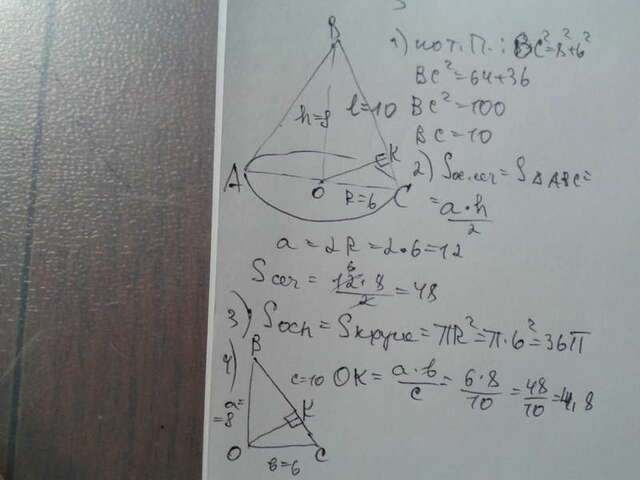 B
h=8
l=10
K
A
O
R=6
C
1) по т.П.: BC²=8²+6²
BC²=64+36
BC²=100
BC=10
2) Sос.сеч=S△ABC=
=a·h/2
a=2R=2·6=12
Sсеч=12·8/2=48
6
3) Sосн=Sкруга=πR²=π·6²=36π
4)
B
a=
=8
c=10
K
O
в=6
C
OK=a·в/c=6·8/10=48/10=4,8